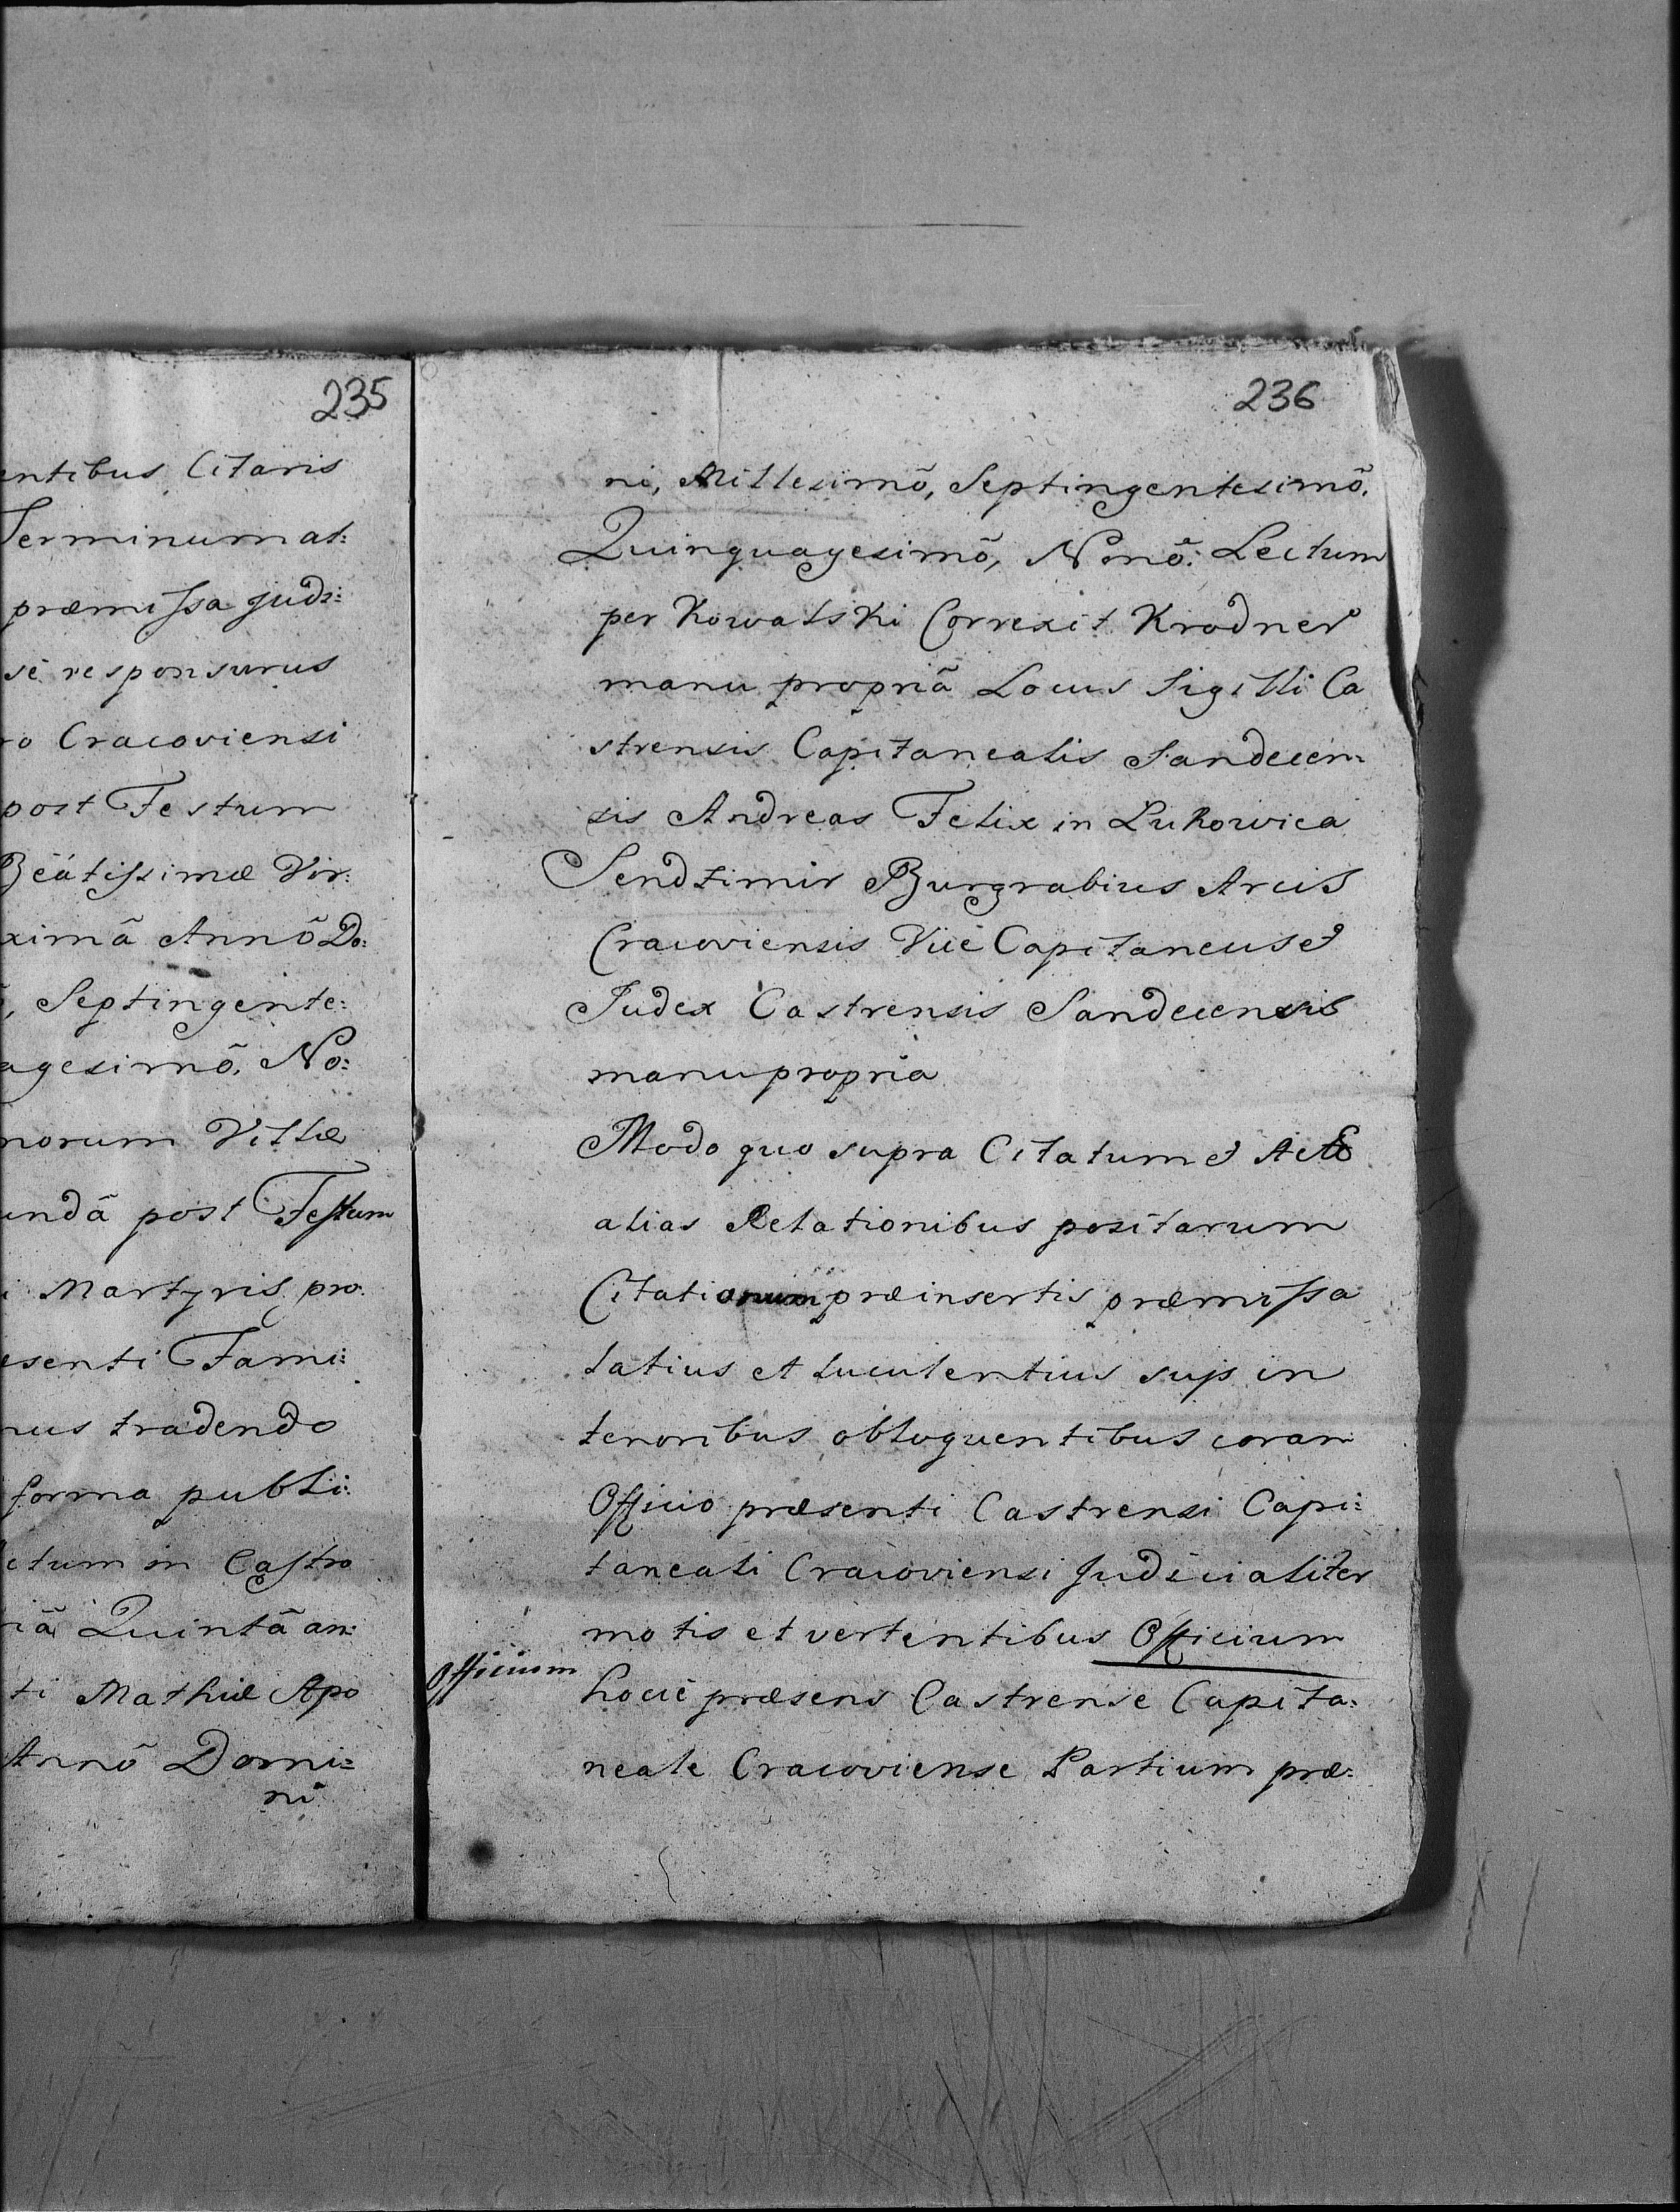 235
entibus Citaris
Terminum at:
præmissa judi:
se responsurus
ro Cracoviensi
post Festum
Beátissimæ Vir:
ximâ Annô Do:
, Septingente:
agesimô, No:
norum Villæ
undâ post Festum
i Martyris pro:
esenti Fami:
nus tradendo
forma publi:
ctum in Castro
riâ Quintâ an:
ti Mathiæ Apo
Annô Domi:
ni
236
ni, Millesimô, Septingentesimô,
Quinquagesimô, Nonô: Lectum
per Kowalski Correxit Krodner
manu propriâ Locus Sigilli Ca
strensis Capitanealis Sandecen:
sis Andreas Felix in Lukowica
Sendzimir Burgrabius Arcis
Cracoviensis Vice Capitaneus et
Judex Castrensis Sandecensis
manu propria
Modo quo supra Citatum et Acto
alias Relationibus positarum
Citationum præinsertis præmissa
latius et luculentius sup in
tenoribus obloquentibus coram
Officio præsenti Castrensi Capi:
taneali Cracoviensi Judicialiter
motis et vertentibus Officium
Officium
hocce præsens Castrense Capita:
neale Cracoviense Partium præ: